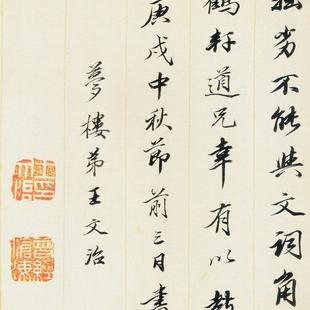 拙劣不能与文词角
鹤轩道兄幸有以教
庚戌中秋节前三日书
梦楼弟王文治
曾经沧海